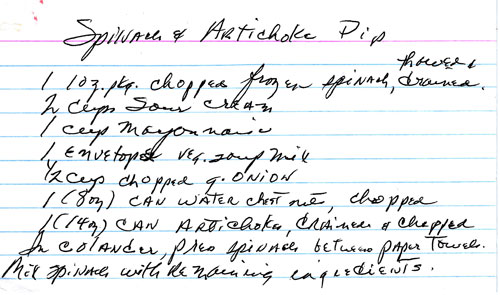 Spinach & Artichoke Dip
1 10z. pkg. chopped frozen spinach, thawed & drained.
2 cups Sour Cream
1 cup Mayonnaise
1 envelope veg. soup mix
1/2 cup chopped g. ONION
1 (8oz) CAN WATER chestnuts, chopped
1 (14oz) CAN ARtichokes, drained & chopped
In COLANDER, press spinach between paper towels.
Mix spinach with Remaining ingredients.